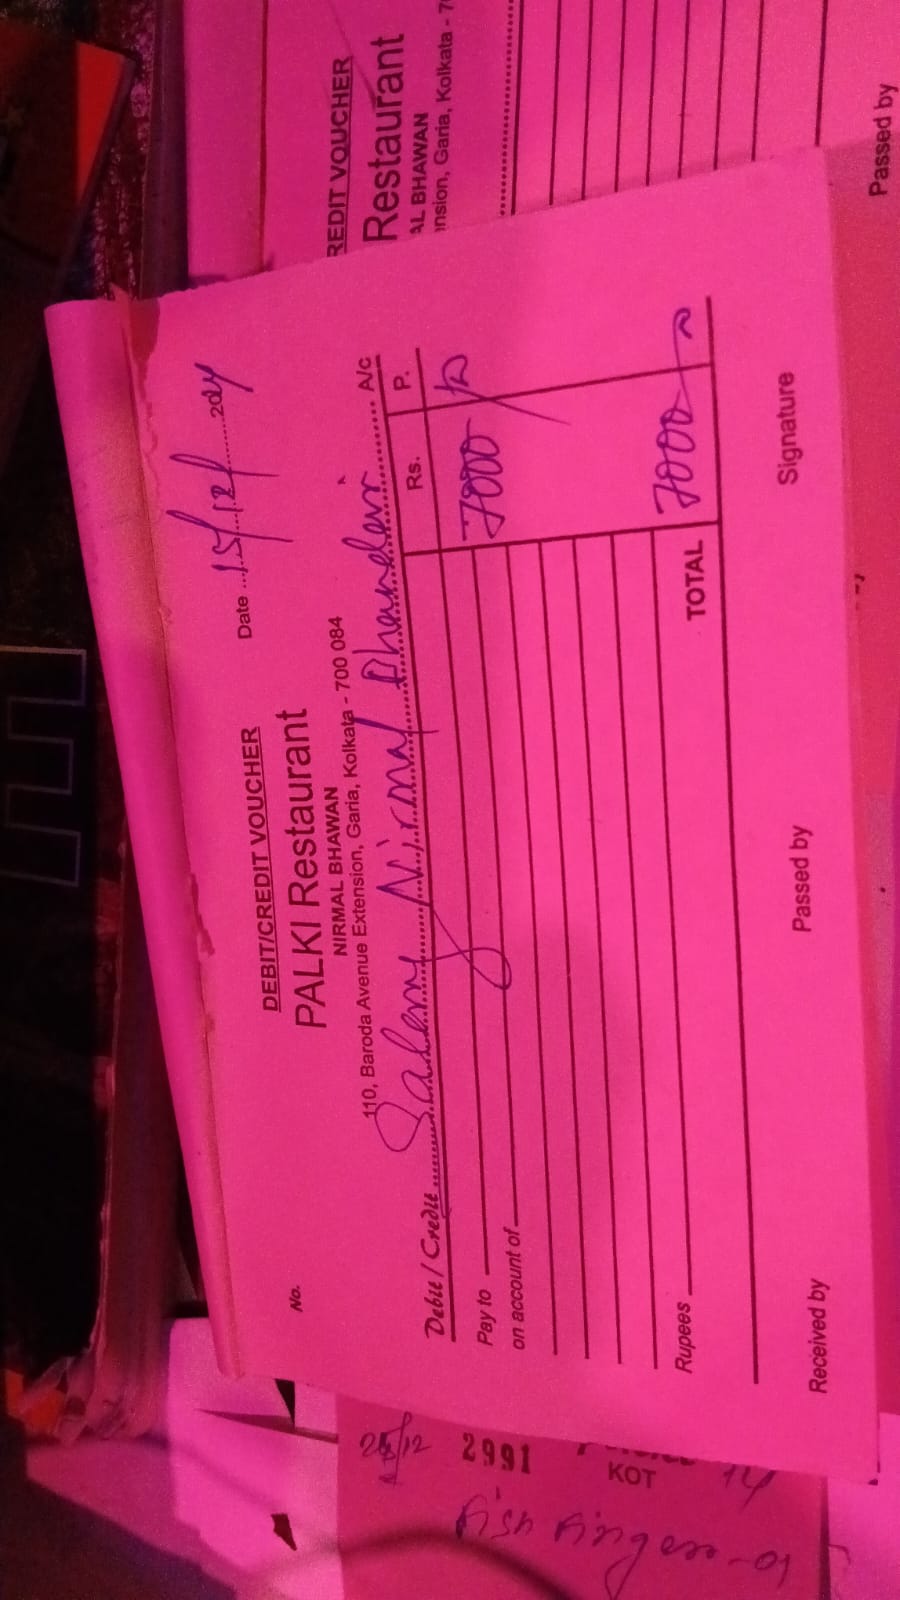 No.
DEBIT/CREDIT VOUCHER
Date 15/12/2024
PALKI Restaurant
NIRMAL BHAWAN
110, Baroda Avenue Extension, Garia, Kolkata - 700 084
Debit / Credit Salary Nirmal A/c
Rs. P.
Pay to 7000
on account of
Rupees TOTAL 7000
Received by Passed by Signature
REDIT VOUCHER
Restaurant
AL BHAWAN
nsion, Garia, Kolkata - 7
Passed by
/12
2991
KOT
Fish finger